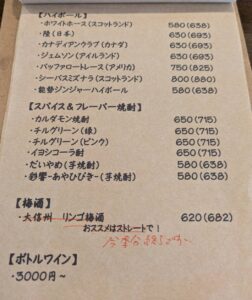 【ハイボール】
・ホワイトホース(スコットランド) 580(638)
・陸(日本) 630(693)
・カナディアンクラブ(カナダ) 630(693)
・ジェムソン(アイルランド) 630(693)
・バッファロートレース(アメリカ) 750(825)
・シーバスミズナラ(スコットランド) 800(880)
・能登ジンジャーハイボール 580(638)
【スパイス&フレーバー焼酎】
・カルダモン焼酎 650(715)
・チルグリーン(緑) 650(715)
・チルグリーン(ピンク) 650(715)
・イヨシコーラ酎 650(715)
・だいやめ(芋焼酎) 580(638)
・彩響-あやひびき-(芋焼酎) 580(638)
【梅酒】
・大信州 リンゴ梅酒 620(682)
おススメはストレートで!
【ボトルワイン】
・3000円~